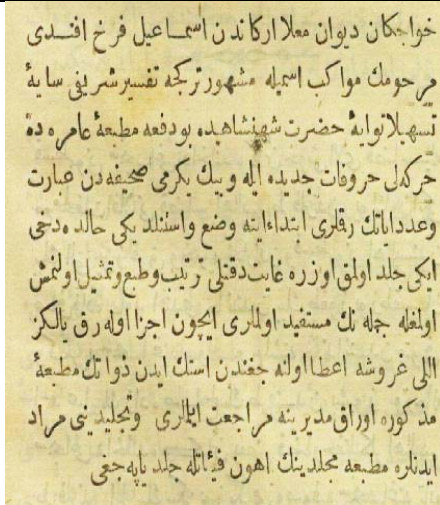 خواجكان ديوان معلا اركاندن اسماعيل فرخ افندى
مرحومك مواكب اسميله مشهور تركجه تفسير شريفى سايهٔ
تسهيلاتوايهٔ حضرت شهنشاهيده بودفعه مطبعهٔ عامره ده
حركه لى حروفات جديده ايله وبيك يكرمى صحيفه دن عبارت
وعدد اياتك رقلرى ابتداء ايته وضع واستنلد يكى حالده دخى
ايكى جلد اولمق اوزره غايت دقتلى ترتيب وطبع وتمثيل اولنمش
اولمغله جمله نك مستفيد اولملرى ايچون اجزا اوله رق يالكز
اللى غروشه اعطا اولنه جغندن استك ايدن ذواتك مطبعهٔ
مذكوره اوراق مديرينه مراجعت ايملرى وتجليدينى مراد
ايدنلره مطبعه مجلدينك اهون فيئاتله جلد ياپه جغى